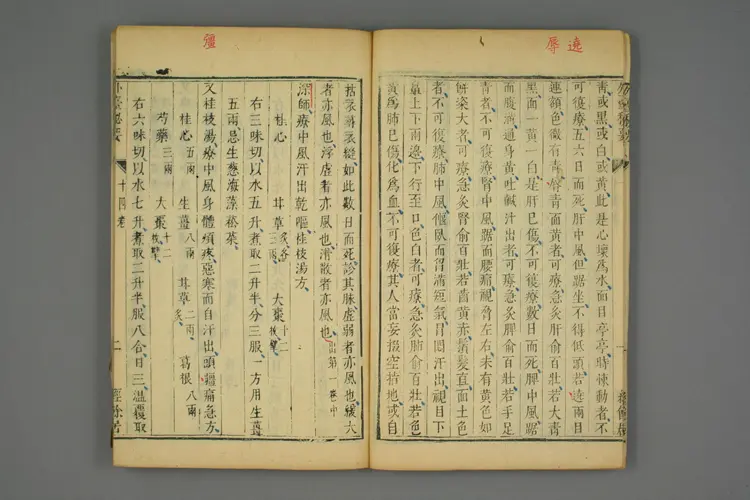 遶
辱
青或黑或白或黃此是心壞為水面目亭亭時悚動者不
可復療五六日而死肝中風但踞坐不得低頭若遶兩目
連額色微有青唇青面黃者可療急灸肝俞百壯若大青
黑面一黃一白是肝已傷不可復療數日而死脾中風踞
而腹滿通身黃吐鹹汁出者可療急灸脾俞百壯若手足
青者不可復療腎中風踞而腰痛視脅左右未有黃色如
餅粢大者可療急灸腎俞百壯若齒黃赤鬢髮直面土色
者不可復療肺中風偃臥而胸滿短氣冒悶汗出視目下
鼻上下兩邊下行至口色白者可療急灸肺俞百壯若色
黃為肺已傷化為血不可復療其人當妄掇空指地或自
疆
拈衣尋衣縫如此數日而死診其脉虛弱者亦風也緩大
者亦風也浮虛者亦風也滑散者亦風也出第一卷中
深師療中風汗出乾嘔桂枝湯方
桂心 甘草三兩炙各 大棗十二枚擘
右三味切以水五升煮取二升半分三服一方用生薑
五兩忌生葱海藻菘菜
又桂枝湯療中風身體煩疼惡寒而自汗出頭疆痛急方
桂心五兩 生薑八兩 甘草二兩炙 葛根八兩
芍藥三兩 大棗十二枚擘
右六味切以水七升煮取二升半服八合日三溫覆取
外臺秘要
十四卷
二
經餘居